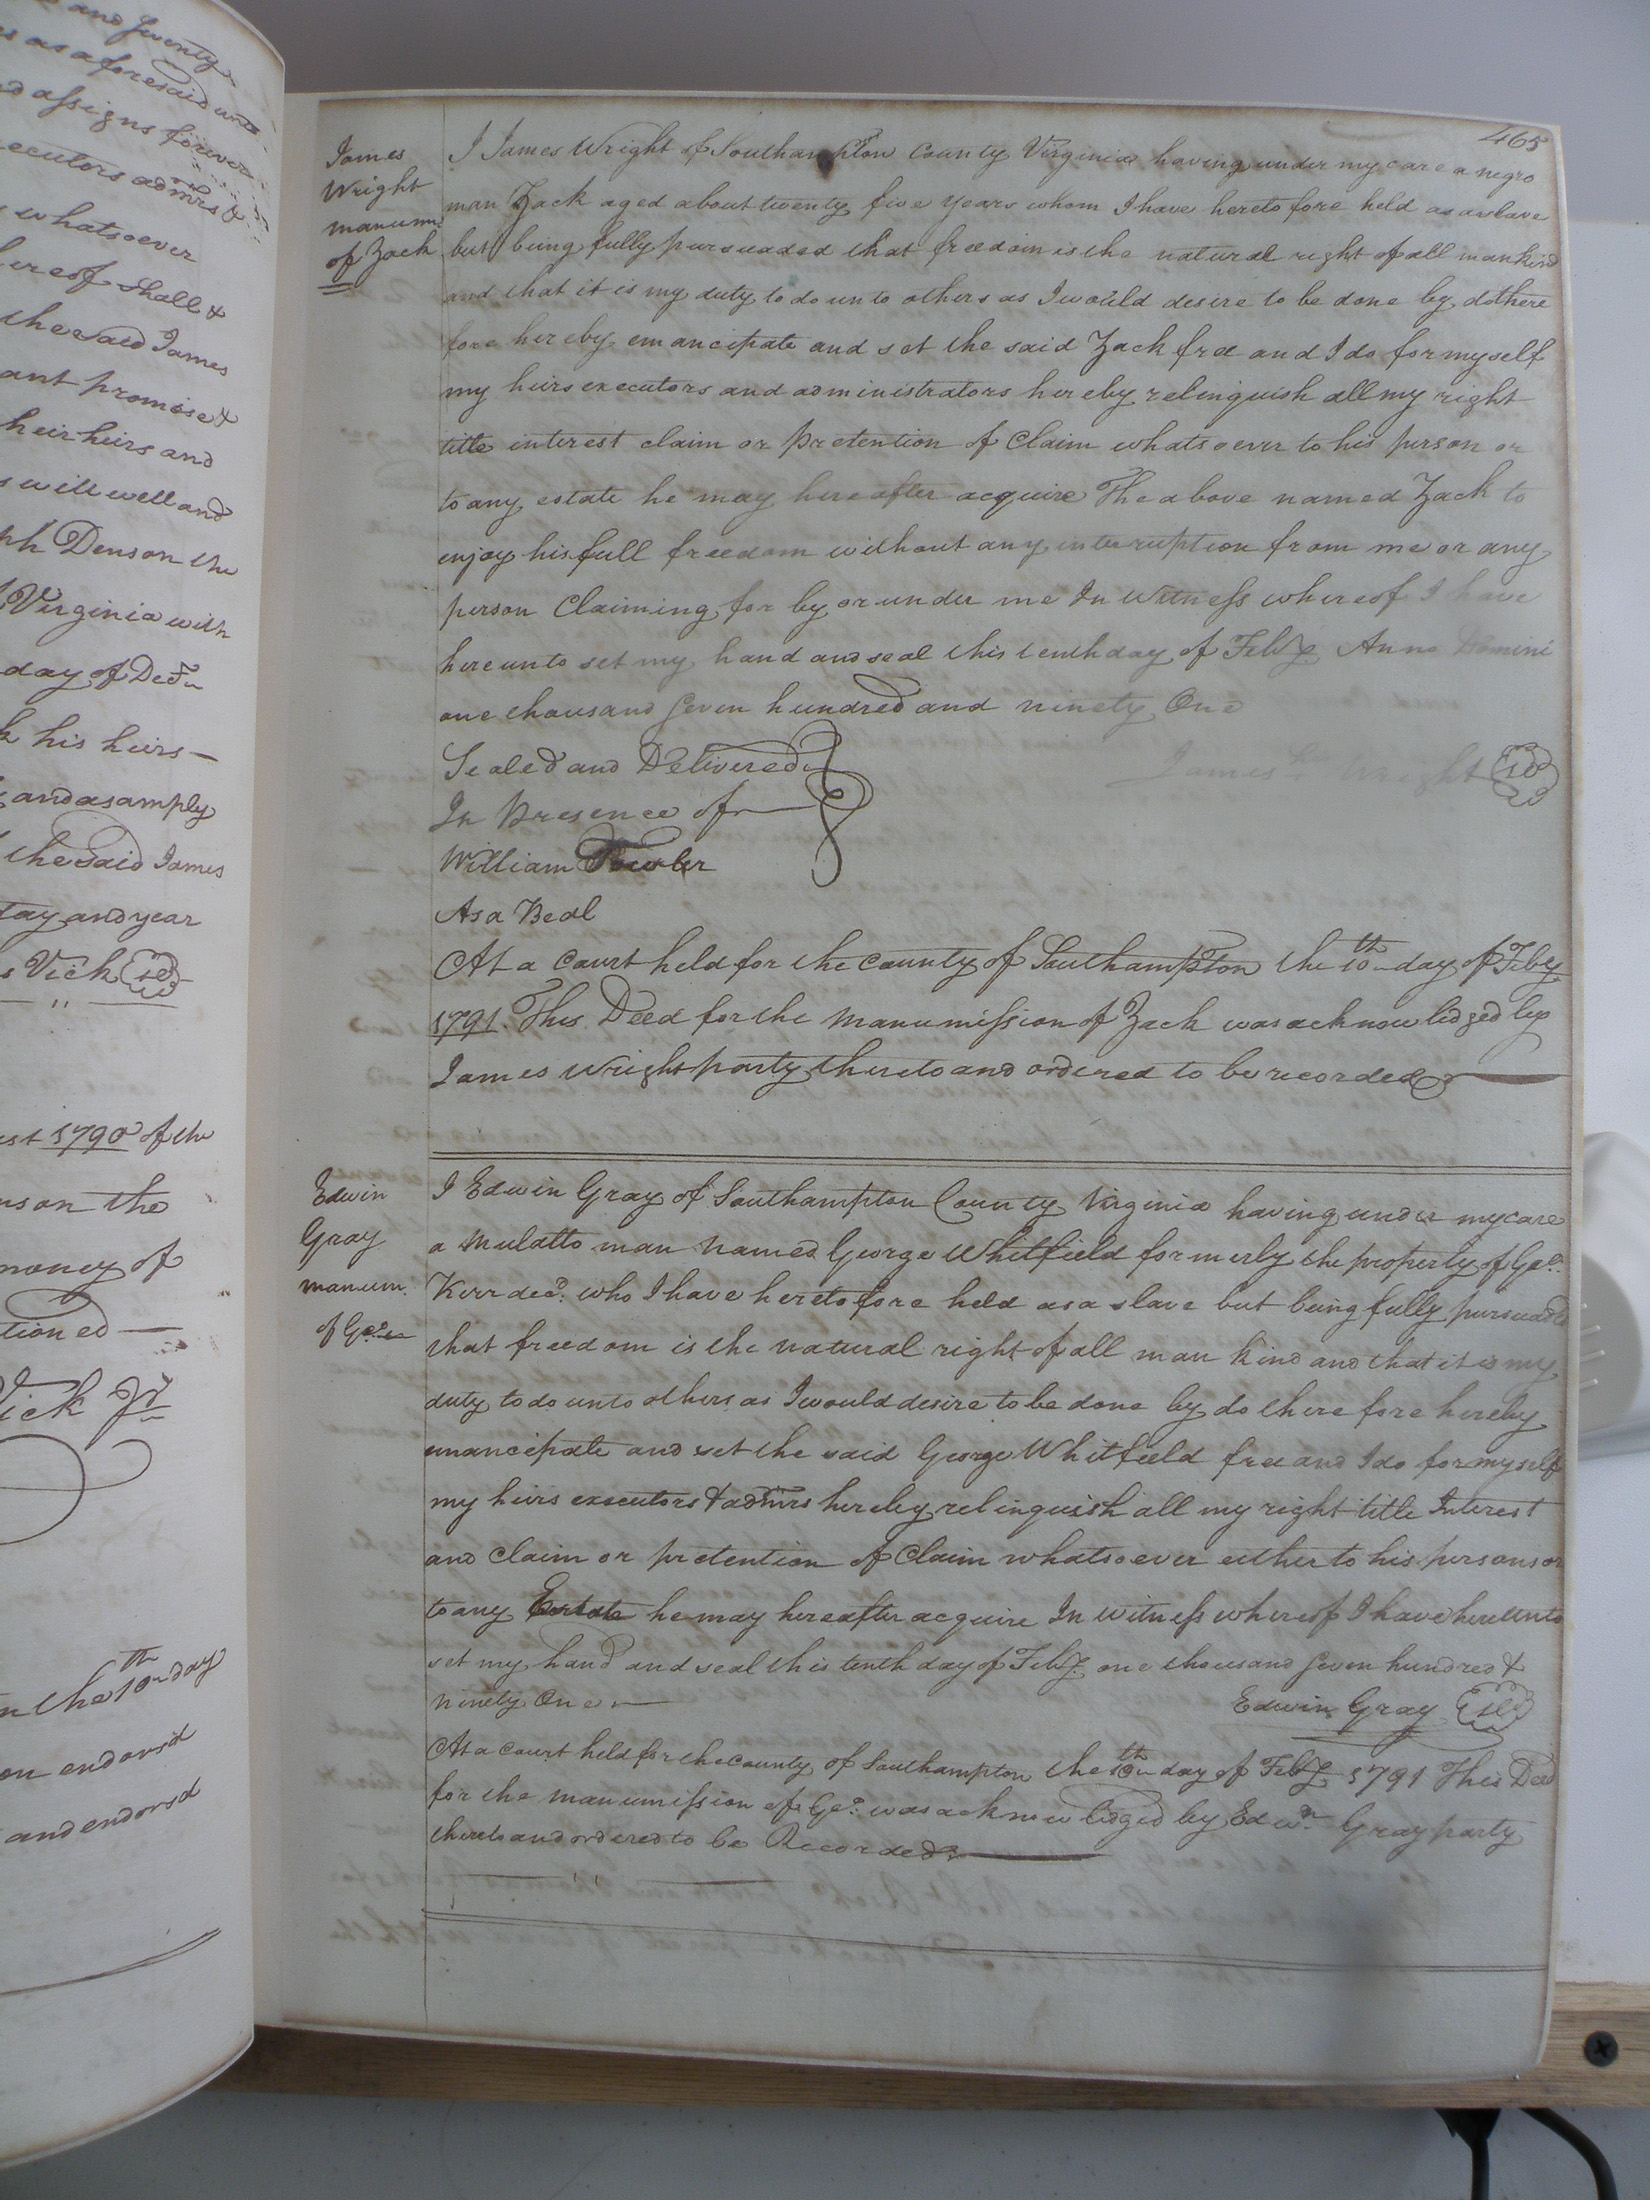 and seventy
as aforesaid unto
and assigns forever
executors admrs &
whatsoever
hereof shall &
the said James
ant promise &
heir heirs and
s will well and
ph Denson the
Virginia with
day of Decr
k his heirs —
and as amply
the said James
day and year
s Vick Sd
ust 1790 of the
nson the
money of
tioned —
Vick Jr
n the 10th day
on endors'd
and endorsd
465
James
Wright
manum
of Zack
I James Wright of Southampton County Virginia having under my care a negro
man Zack aged about twenty five years whom I have heretofore held as a slave
but being fully pursuaded that freedom is the natural right of all mankind
and that it is my duty to do unto others as I would desire to be done by, do there
fore hereby emancipate and set the said Zack free and I do for myself
my heirs executors and administrators hereby relinquish all my right
title interest claim or pretention of Claim whatsoever to his person or
to any estate he may hereafter acquire The above named Zack to
enjoy his full freedom without any interruption from me or any
person Claiming for by or under me In Witness whereof I have
hereunto set my hand and seal this tenth day of Feby Anno Domini
one thousand seven hundred and ninety One
Sealed and Delivered
James Wright Sd
In Presence of
William Fowler
Asa Beal
At a Court held for the County of Southampton the 10th day of Feby
1791. This Deed for the manumission of Zack was acknowlidged by
James Wright party thereto and ordered to be recorded
Edwin
Gray
manum.
of Geo.
I Edwin Gray of Southampton County Virginia having under my care
a Mulatto man named George Whitfield formerly the property of Geo.
Kerr decd. who I have heretofore held as a slave but being fully pursuaded
that freedom is the natural right of all man kind and that it is my
duty to do unto others as I would desire to be done by do there fore hereby
emancipate and set the said George Whitfield free and I do for my self
my heirs executors & admrs hereby relinquish all my right title Interest
and Claim or pretention of Claim whatsoever either to his persons or
to any Estate he may hereafter acquire In witness whereof I have hereunto
set my hand and seal this tenth day of Feby. one thousand seven hundred &
ninety One —
Edwin Gray Sd
At a Court held for the County of Southampton the 10th day of Feby 1791 This Deed
for the manumission of Geo. was acknowlidged by Edwn. Gray party
thereto and ordered to be Recorded